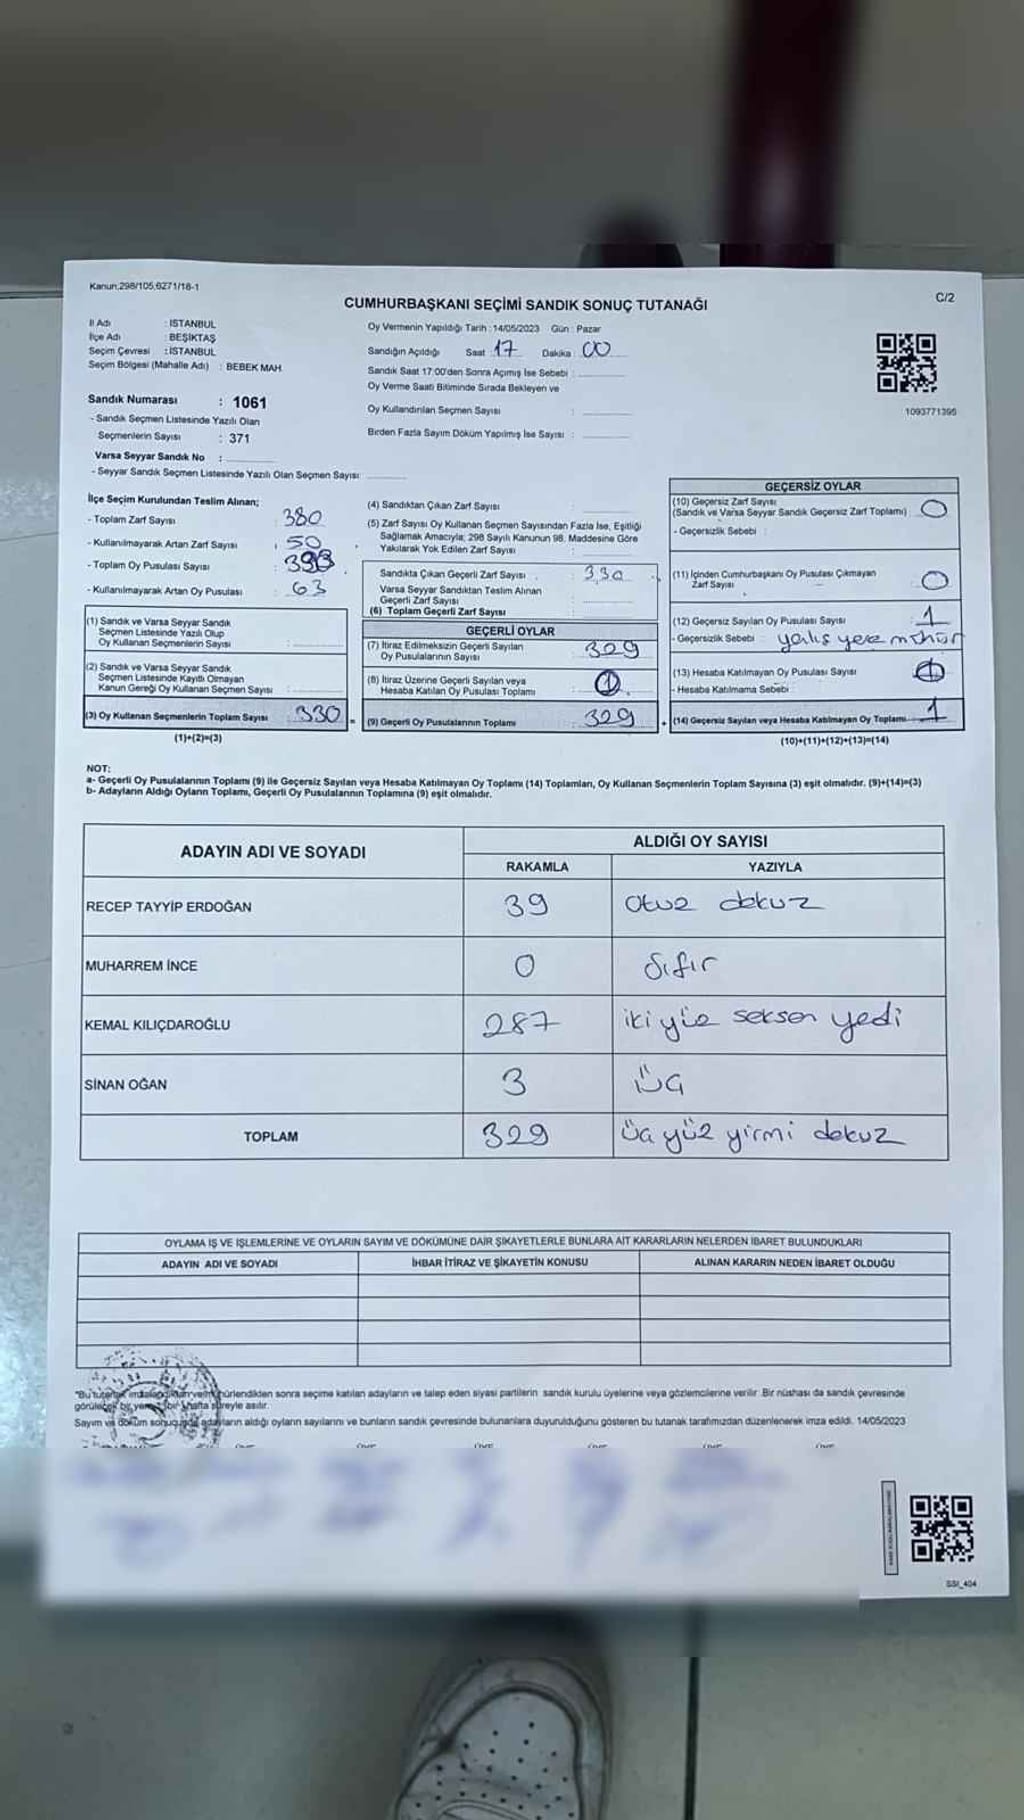 Kanun;298/105,6271/18-1
C/2
CUMHURBAŞKANI SEÇİMİ SANDIK SONUÇ TUTANAĞI
İl Adı : İSTANBUL
İlçe Adı : BEŞİKTAŞ
Seçim Çevresi : İSTANBUL
Seçim Bölgesi (Mahalle Adı) : BEBEK MAH.
Sandık Numarası : 1061
- Sandık Seçmen Listesinde Yazılı Olan
Seçmenlerin Sayısı : 371
Varsa Seyyar Sandık No :
- Seyyar Sandık Seçmen Listesinde Yazılı Olan Seçmen Sayısı:
Oy Vermenin Yapıldığı Tarih : 14/05/2023 Gün : Pazar
Sandığın Açıldığı Saat : 17 Dakika : 00
Sandık Saat 17:00'den Sonra Açmış İse Sebebi :
Oy Verme Saati Bitiminde Sırada Bekleyen ve
Oy Kullandırılan Seçmen Sayısı :
Birden Fazla Sayım Döküm Yapılmış İse Sayısı :
1093771396
İlçe Seçim Kurulundan Teslim Alınan;
- Toplam Zarf Sayısı : 380
- Kullanılmayarak Artan Zarf Sayısı : 50
- Toplam Oy Pusulası Sayısı :
- Kullanılmayarak Artan Oy Pusulası : 63
(1) Sandık ve Varsa Seyyar Sandık
Seçmen Listesinde Yazılı Olup
Oy Kullanan Seçmenlerin Sayısı :
(2) Sandık ve Varsa Seyyar Sandık
Seçmen Listesinde Kayıtlı Olmayan
Kanun Gereği Oy Kullanan Seçmen Sayısı :
(3) Oy Kullanan Seçmenlerin Toplam Sayısı : 330 =
(1)+(2)=(3)
(4) Sandıktan Çıkan Zarf Sayısı :
(5) Zarf Sayısı Oy Kullanan Seçmen Sayısından Fazla İse, Eşitliği
Sağlamak Amacıyla; 298 Sayılı Kanunun 98. Maddesine Göre
Yakılarak Yok Edilen Zarf Sayısı :
Sandıkta Çıkan Geçerli Zarf Sayısı : 330
Varsa Seyyar Sandıktan Teslim Alınan
Geçerli Zarf Sayısı :
(6) Toplam Geçerli Zarf Sayısı :
GEÇERLİ OYLAR
(7) İtiraz Edilmeksizin Geçerli Sayılan
Oy Pusulalarının Sayısı : 329
(8) İtiraz Üzerine Geçerli Sayılan veya
Hesaba Katılan Oy Pusulası Toplamı :
(9) Geçerli Oy Pusulalarının Toplamı : 329 +
GEÇERSİZ OYLAR
(10) Geçersiz Zarf Sayısı
(Sandık ve Varsa Seyyar Sandık Geçersiz Zarf Toplamı) : 0
- Geçersizlik Sebebi :
(11) İçinden Cumhurbaşkanı Oy Pusulası Çıkmayan
Zarf Sayısı : 0
(12) Geçersiz Sayılan Oy Pusulası Sayısı : 1
- Geçersizlik Sebebi : yalış yere mühür
(13) Hesaba Katılmayan Oy Pusulası Sayısı :
- Hesaba Katılmama Sebebi :
(14) Geçersiz Sayılan veya Hesaba Katılmayan Oy Toplamı : 1
(10)+(11)+(12)+(13)=(14)
NOT:
a- Geçerli Oy Pusulalarının Toplamı (9) ile Geçersiz Sayılan veya Hesaba Katılmayan Oy Toplamı (14) Toplamları, Oy Kullanan Seçmenlerin Toplam Sayısına (3) eşit olmalıdır. (9)+(14)=(3)
b- Adayların Aldığı Oyların Toplamı, Geçerli Oy Pusulalarının Toplamına (9) eşit olmalıdır.
ADAYIN ADI VE SOYADI
ALDIĞI OY SAYISI
RAKAMLA YAZIYLA
RECEP TAYYİP ERDOĞAN 39 otuz dokuz
MUHARREM İNCE 0 sıfır
KEMAL KILIÇDAROĞLU 287 iki yüz seksen yedi
SİNAN OĞAN 3 üç
TOPLAM 329 üç yüz yirmi dokuz
OYLAMA İŞ VE İŞLEMLERİNE VE OYLARIN SAYIM VE DÖKÜMÜNE DAİR ŞİKAYETLERLE BUNLARA AİT KARARLARIN NELERDEN İBARET BULUNDUKLARI
ADAYIN ADI VE SOYADI İHBAR İTİRAZ VE ŞİKAYETİN KONUSU ALINAN KARARIN NEDEN İBARET OLDUĞU
"Bu tutanak imzalandıktan ve mühürlendikten sonra seçime katılan adayların ve talep eden siyasi partilerin sandık kurulu üyelerine veya gözlemcilerine verilir. Bir nüshası da sandık çevresinde
görülecek bir yere bir hafta süreyle asılır.
Sayım ve döküm sonucunda adayların aldığı oyların sayılarını ve bunların sandık çevresinde bulunanlara duyurulduğunu gösteren bu tutanak tarafımızdan düzenlenerek imza edildi. 14/05/2023
SSI_404